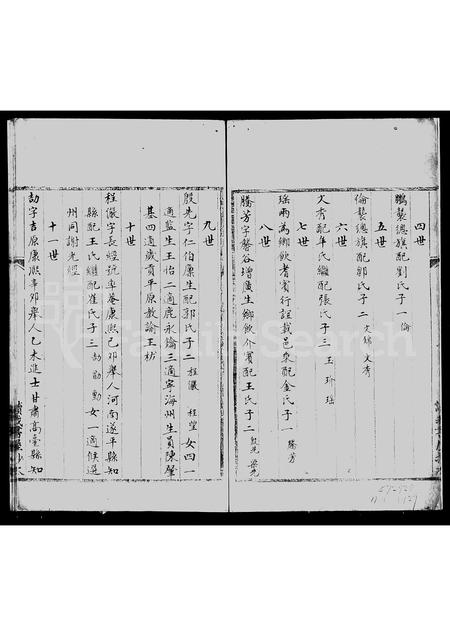 四世
鵬 襲總旗配劉氏子一 倫
五世
倫 襲總旗配郭氏子二 文錦 文秀
六世
文秀 配牟氏繼配張氏子三 玉 玠 瑤
七世
瑤 兩為鄉飲耆賓行誼載邑乘配金氏子一 騰芳
八世
騰芳 字馨谷增廣生鄉飲介賓配王氏子二 殷先 榮先
九世
殷先 字仁伯廩生配郭氏子二 程儀 程望 女四一
適監生王怡二適鹿永鑰三適寧海州生員陳肇
基四適歲貢平原教諭王枋
十世
程儀 字長經號 菴康熙己卯舉人河南遂平縣知
縣配王氏繼配崔氏子三 劼 勛 勷 女一適候選
州同謝光經
十一世
劼 字吉原康熙辛卯舉人乙未進士甘肅高臺縣知
FamilySearch